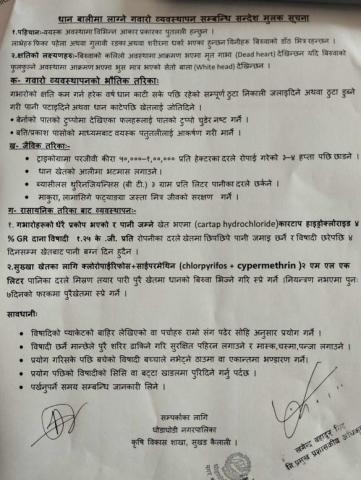 धान बालीमा लाग्ने गवारो व्यवस्थापन सम्बन्धि सन्देश मुलक सूचना
१.पहिचान:-वयस्क अवस्थामा विभिन्न आकार प्रकारका पुतली हुन्छन
लार्भेहरु फिक्का पहेला अथवा गुलावी रङका अथवा शरीरमा धर्का भएका हुन्छन यिनीहरु बिरुवाको डाँठ भित्र रहन्छन ।
२.क्षतिको लक्षणहरु:-बिरुवाको कलिलो अवस्थामा आक्रमण भएमा मृत गाभा (Dead heart) देखिन्छन यदि बिरुवाको
फुल्ने अवस्थामा आक्रमण भएमा भुस मात्र भएको सेतो बाला (White head) देखिन्छन ।
क- गवारो व्यवस्थापनको भौतिक तरिका:
गभारोको क्षति कम गर्न हरेक वर्ष धान काटी सके पछि रहेको सम्पूर्ण ठुटा निकाली जलाइदिने अथवा ठुटा डुब्ने
गरी पानी पटाइदिने अथवा धान काटेपछि खेतलाई जोतिदिने ।
• बेर्नाको पातको टुप्पोमा देखिएका फुलहरुलाई पातको टुप्पो चुडेर नष्ट गर्ने ।
• बत्ति/प्रकाश पासोको माध्यमबाट वयस्क पुतलीलाई आकर्षण गरी मार्ने ।
ख- जैविक तरिका:-
• ट्राइकोग्रामा परजीवी कीरा ५०,०००-१,००,००० प्रति हेक्टरका दरले रोपाई गरेको ३-४ हप्ता पछि छाड्ने ।
• धान खेतको आलीमा भटमास लगाउने ।
• ब्यासीलस थुरिनजियन्सिस (बी टी.) ३ ग्राम प्रति लिटर पानीका दरले छर्कने ।
• माकुरा, लामासिङ्गे फट्याङग्रा जस्ता मित्र जीवको संरक्षण गर्ने ।
ग- रासायनिक तरिका बाट व्यवस्थापन:-
१. गभारोहरुको धेरै प्रकोप भएको र पानी जम्ने खेत भएमा (cartap hydrochloride)कारटाप हाइड्रोक्लोराइड ४
% GR दाना विषादी १.२५ के .जी. प्रति रोपनीका दरले खेतमा छिपछिपे पानी जमाई छर्ने र विषादी छरेपछि ४
दिनसम्म खेतबाट पानी बग्न दिनु हुदैन ।
२.सुख्खा खेतका लागि क्लोरोपाईरिफोस+साईपरमेथ्रिन (chlorpyrifos + cypermethrin )२ एम एल एक
लिटर पानिका दरले मिश्रण तयार पारी पुरै खेतमा धानको बिरुवा भिज्ने गरि स्प्रे गर्ने ।नियन्त्रण नभएमा पुनः
७दिनको फरकमा पुरैखेतमा स्प्रे गर्ने ।
सावधानीः
• विषादिको प्याकेटको बाहिर लेखिएको वा पर्चाहरु राम्रो संग पढेर सोहि अनुसार प्रयोग गर्ने ।
• विषादी छर्ने मान्छेले पुरै शरिर ढाकिने गरि सुरक्षित पहिरन लगाउने र मास्क,चस्मा,पन्जा लगाउने ।
• प्रयोग गरिसके पछि बचेको विषादी बच्चाले नभेट्ने ठाउमा वा एकान्तमा भण्डारण गर्ने।
• प्रयोग पछिको विषादीको सिसि वा बट्टा खाडलमा पुरिदिने गर्नु पर्दछ ।
• पर्खनुपर्ने समय सम्बन्धि जानकारी लिने ।
सम्पर्कका लागि
घोडाघोडी नगरपालिका
कृषि विकास शाखा, सुखड कैलाली ।